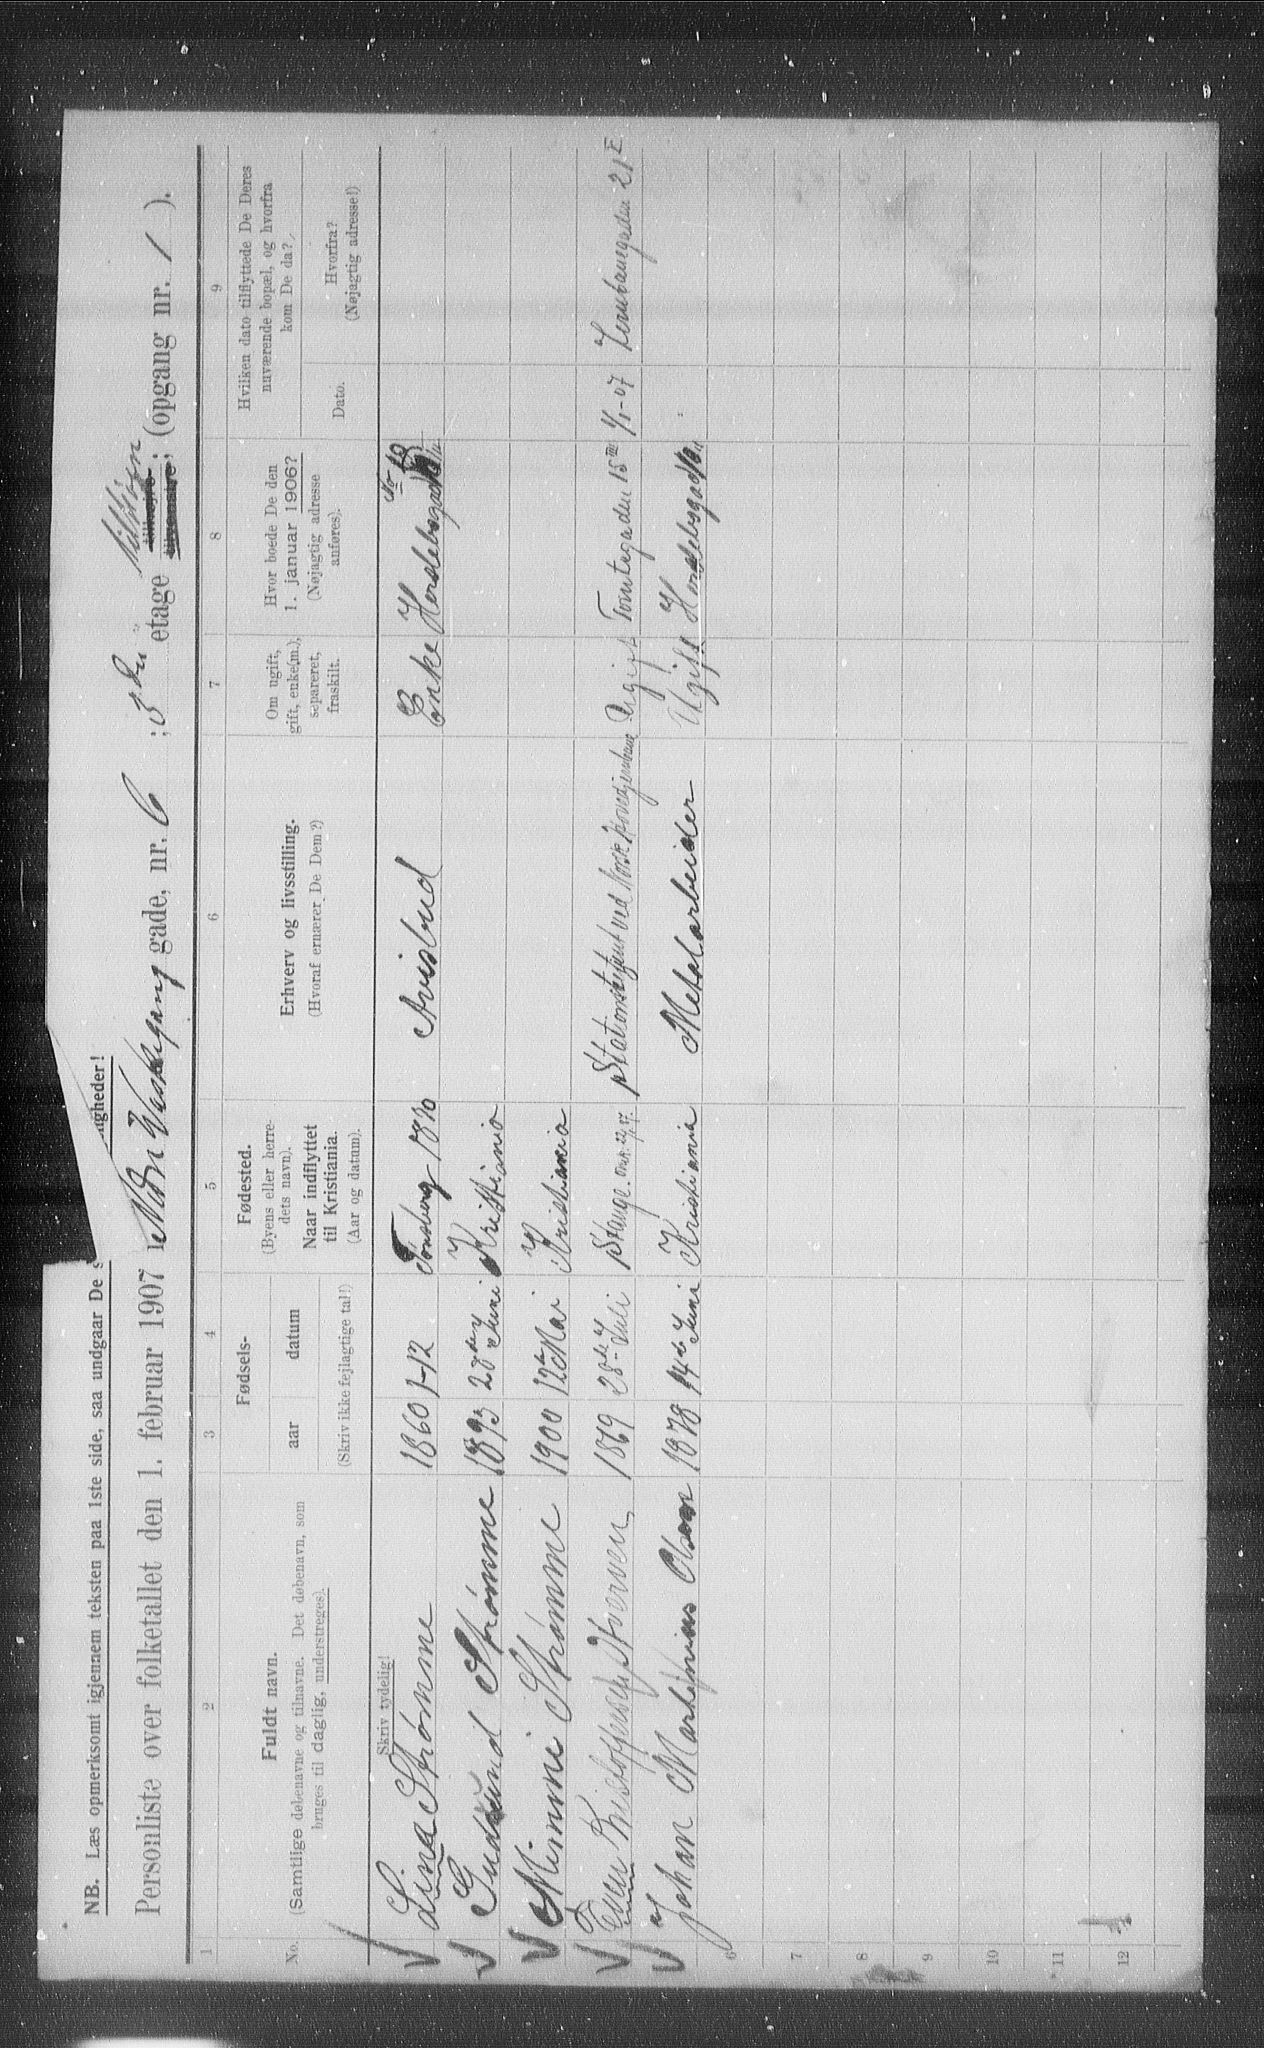 NB. Læs opmerksomt igjennem teksten paa 1ste side, saa undgaar De s
igheder!
Personliste over folketallet den 1. februar 1907 i Ndr Vaskegang gade, nr. 6 ; 3die etage tilhøjre tilvenstre; (opgang nr. 1 ).
1 2 3 4 5 6 7 8 9
No.
Fuldt navn.
(Samtlige døbenavne og tilnavne. Det døbenavn, som
bruges til daglig, understreges).
Fødsels-
aar datum
(Skriv ikke fejlagtige tal!)
Fødested.
(Byens eller herre-
dets navn).
Naar indflyttet
til Kristiania.
(Aar og datum).
Erhverv og livsstilling.
(Hvoraf ernærer De Dem?)
Om ugift,
gift, enke(m.),
separeret,
fraskilt.
Hvor boede De den
1. januar 1906?
(Nøjagtig adresse
anføres).
Hvilken dato tilflyttede De Deres
nuværende bopæl, og hvorfra
kom De da?
Dato.
Hvorfra?
(Nøjagtig adresse!)
Skriv tydelig!
Lina Strømme 1860 1-12 Tønsberg Avisbud Enke
Gudrund Strømme 1893 28de Juni Kristiania
Minni Strømme 1900 12te Mai Kristiania
Even Kristoffersen 1869 28de Juli Stange Ugift Tomtegaden 1/1-07 Jernbanegaden 21
Johan Olsen 1878 14de Juni Kristiania Metalarbeider Ugift
6
7
8
9
10
11
12